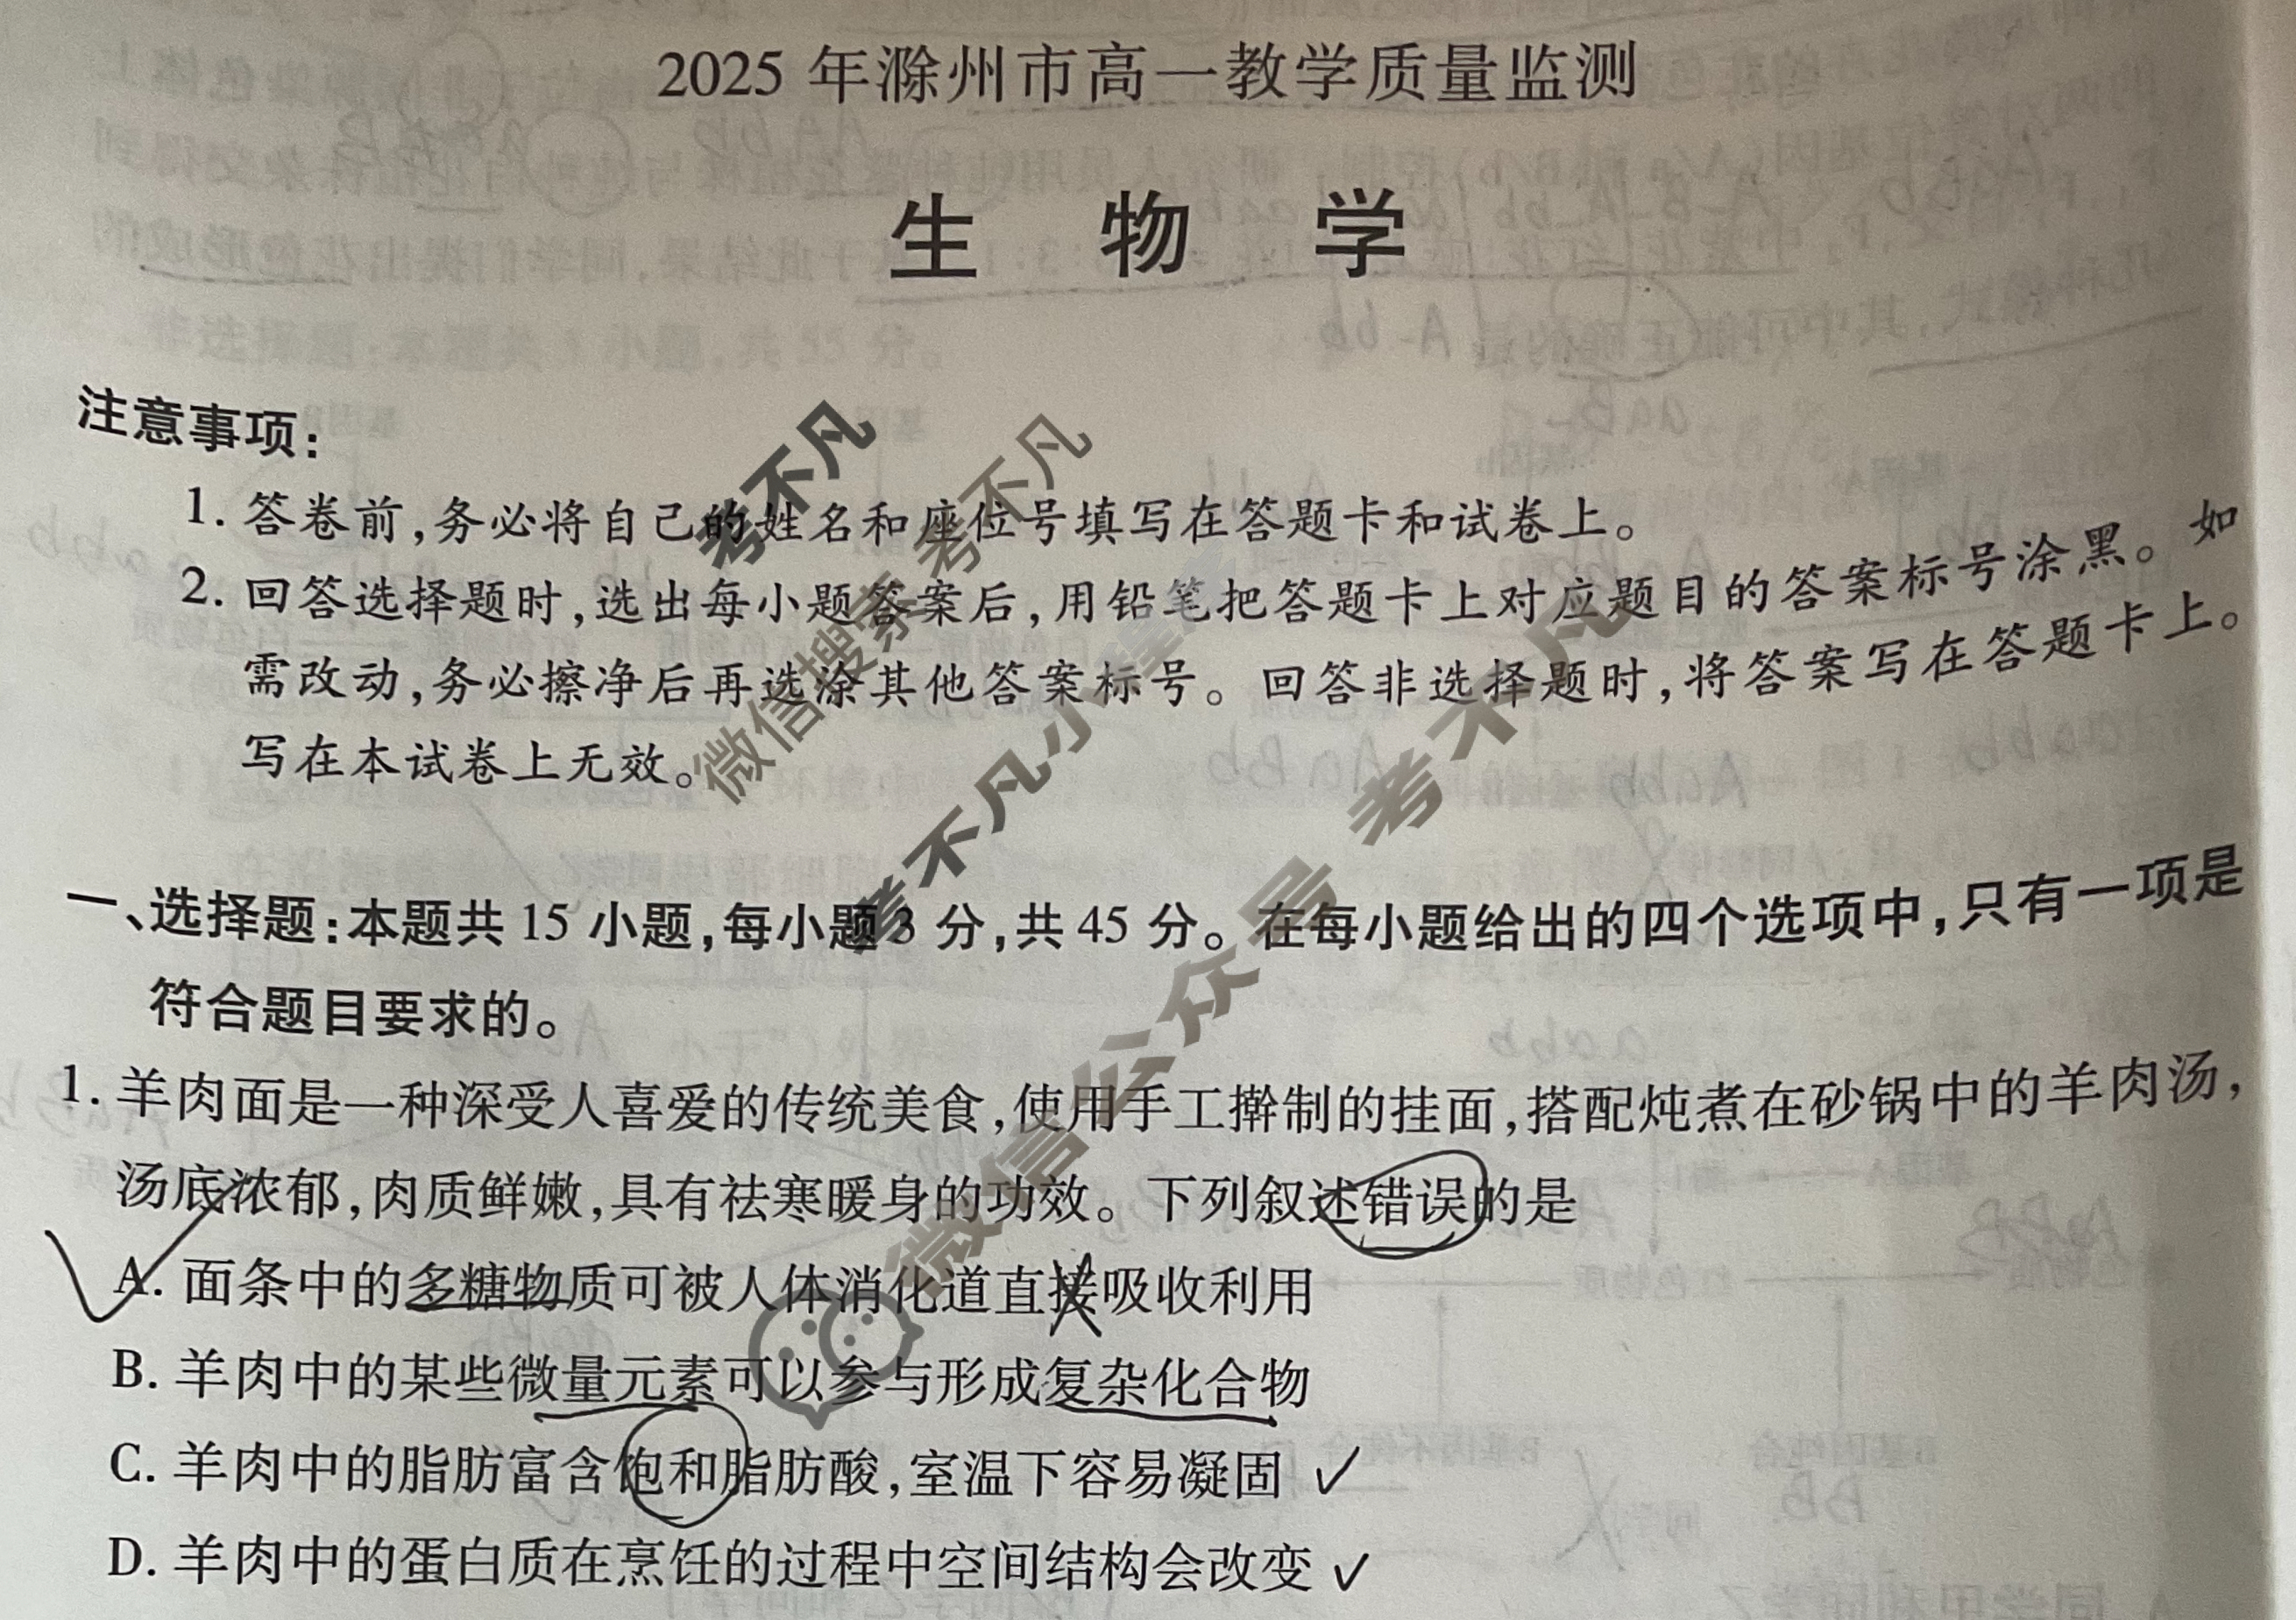 2025 年滁州市高一教学质量监测
生 物 学
注意事项：
1. 答卷前，务必将自己的姓名和座位号填写在答题卡和试卷上。
2. 回答选择题时，选出每小题答案后，用铅笔把答题卡上对应题目的答案标号涂黑。如
需改动，务必擦净后再选涂其他答案标号。回答非选择题时，将答案写在答题卡上。
写在本试卷上无效。
一、选择题：本题共 15 小题，每小题 3 分，共 45 分。在每小题给出的四个选项中，只有一项是
符合题目要求的。
1. 羊肉面是一种深受人喜爱的传统美食，使用手工擀制的挂面，搭配炖煮在砂锅中的羊肉汤，
汤底浓郁，肉质鲜嫩，具有祛寒暖身的功效。下列叙述错误的是
A. 面条中的多糖物质可被人体消化道直接吸收利用
B. 羊肉中的某些微量元素可以参与形成复杂化合物
C. 羊肉中的脂肪富含饱和脂肪酸，室温下容易凝固
D. 羊肉中的蛋白质在烹饪的过程中空间结构会改变
考不凡
微信搜索 考不凡
考不凡小
微信公众号 考不凡